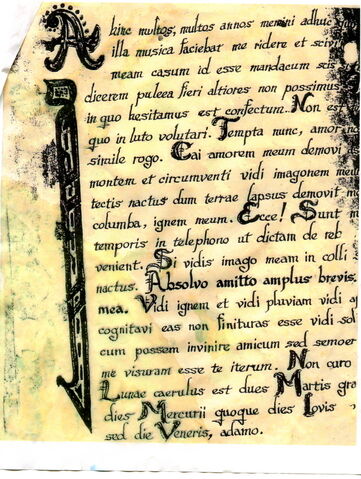 Abinc multos, multos annos memini adhuc quo
illa musica faciebat me ridere et scivi
meam casum id esse mandacum scis
dicerem pulcea fieri altiores non possimus
in quo hesitamus est confectum. Non est
quo in luto volutari. Tempta nunc, amor
simile rogo. Cai amorem meum demovi
montem et circumventi vidi imagonem meu
tectis nactus dum terrae lapsus demovit me
columba, ignem meum. Ecce! Sunt
temporis in telephono ut dictam de reb
venient. Si vidis imago meam in colli
nactus. Absolvo amitto amplus brevis
mea. Vidi ignem et vidi pluviam vidi
cogitavi eas non finituras esse vidi sol
cum possem invinire amicum sed semper
me visuram esse te iterum. Non curo
Lunae caerulus est dues Martis gro
dies Mercurii quoque dies Iovis
sed die Veneris, adamo.